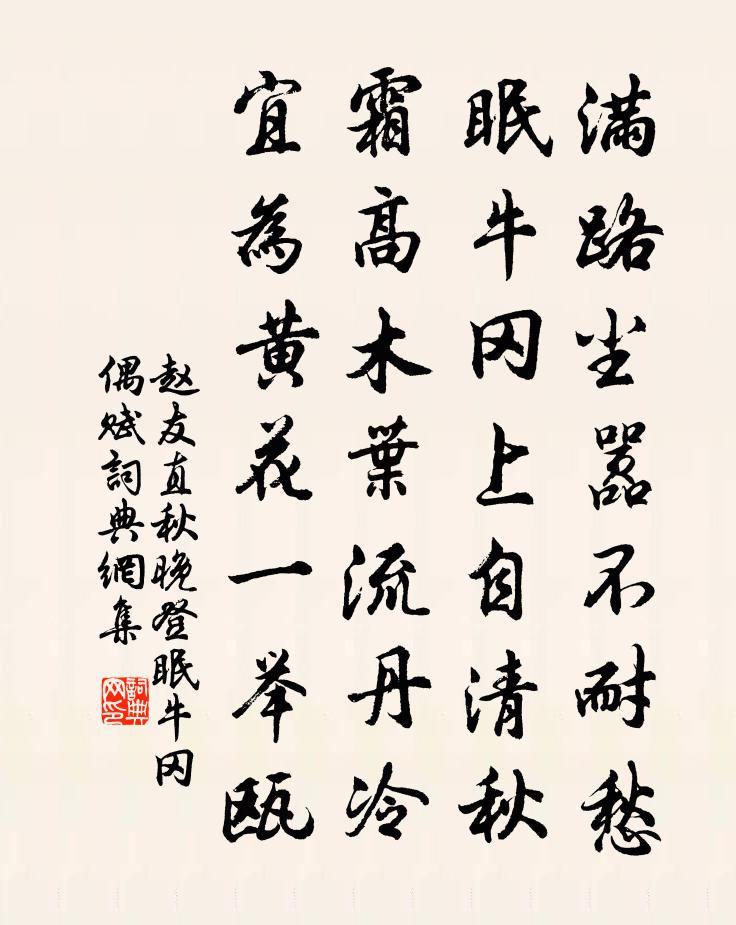 满路尘嚣不耐愁
眠牛冈上自清秋
霜高木葉流丹冷
宜為黄花一举瓯
赵友直秋晚登眠牛冈
偶赋詞典網集
詞典
网印